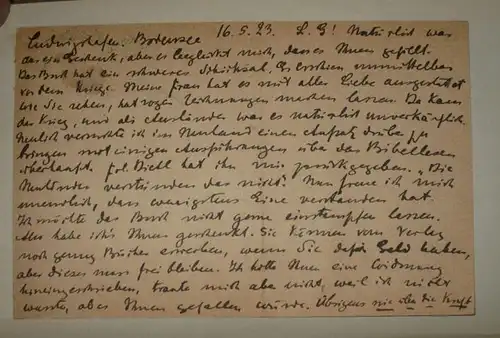 Ludwigshafen. Bodensee 16.5.23. L. G! Natürlich war
das ein Geschenk, aber es beglückt mich, dass es Ihnen gefällt.
Das Buch hat ein schweres Schicksal. Es erschien unmittelbar
vor dem Kriege. Meine Frau hat es mit aller Liebe ausgestattet
wie Sie sehen, hat sogar Zeichnungen machen lassen. Da kam
der Krieg, und als Ausländer war es natürlich unverkäuflich.
Neulich versuchte ich im Neuland einen Aufsatz drüber zu
bringen mit einigen Ausführungen über das Bibellesen
überhaupt. Frl. Diehl hat ihn mir zurückgegeben. „Die
Neuländer verstünden das nicht." Nun freue ich mich
unendlich, dass wenigstens Eine verstanden hat.
Ich möchte das Buch nicht gerne einstampfen lassen.
Also habe ich's Ihnen geschenkt. Sie können vom Verlag
noch genug Bücher erwerben, wenn Sie dafür Geld haben,
aber dieses muss frei bleiben. Ich hätte Ihnen eine Widmung
hineingeschrieben, traute mich aber nicht, weil ich nicht
wusste, ob es Ihnen gefallen würde. Übrigens nie über die